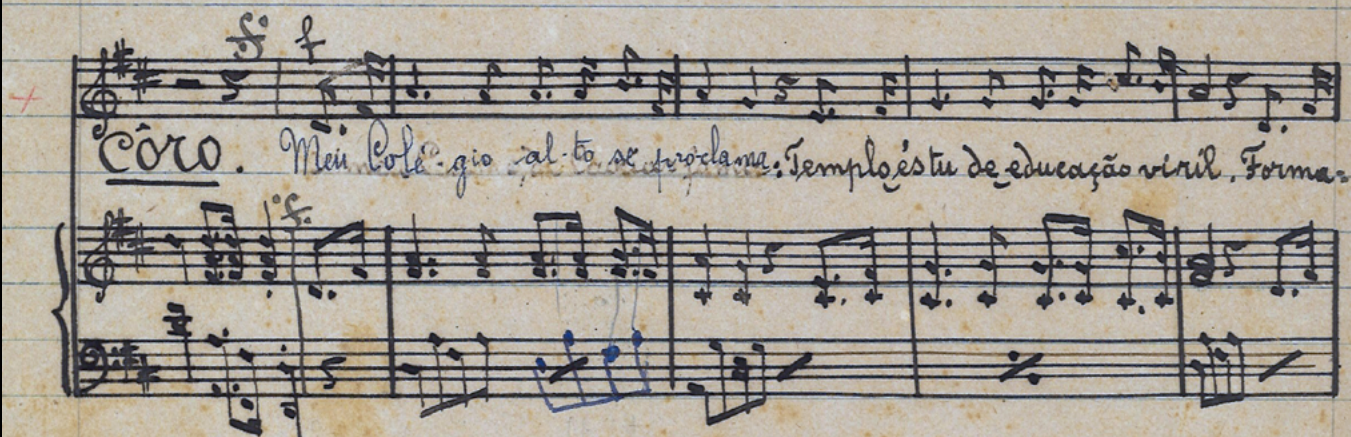 f. f
Côro. Meu Colé-gio al-to se proclama: Templo és tu de educação viril. Forma=
f.